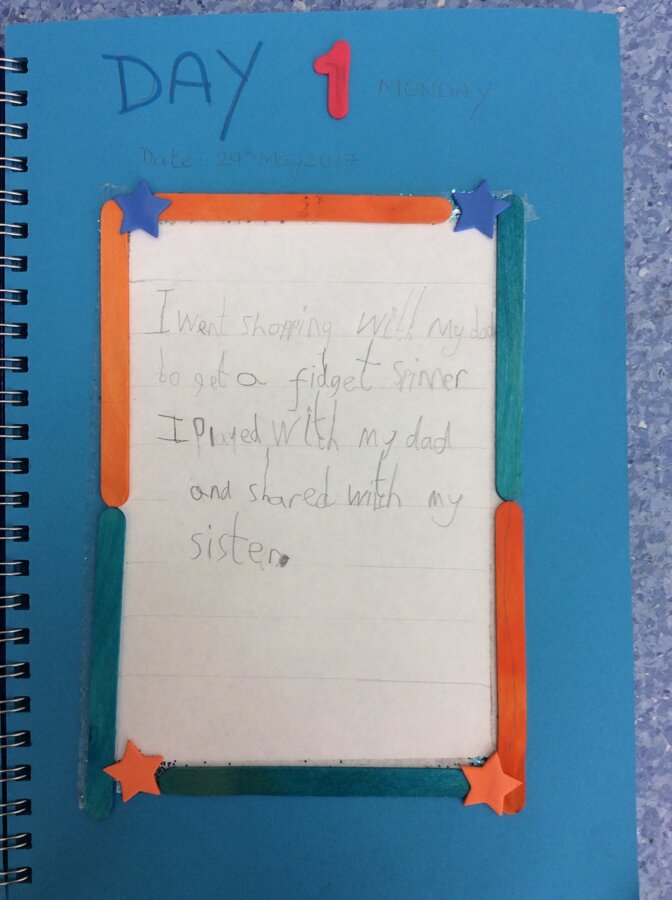 DAY 1 MONDAY
Date: 29th May 2017
I went shopping with my dad
to get a fidget spinner
I played with my dad
and shared with my
sister.